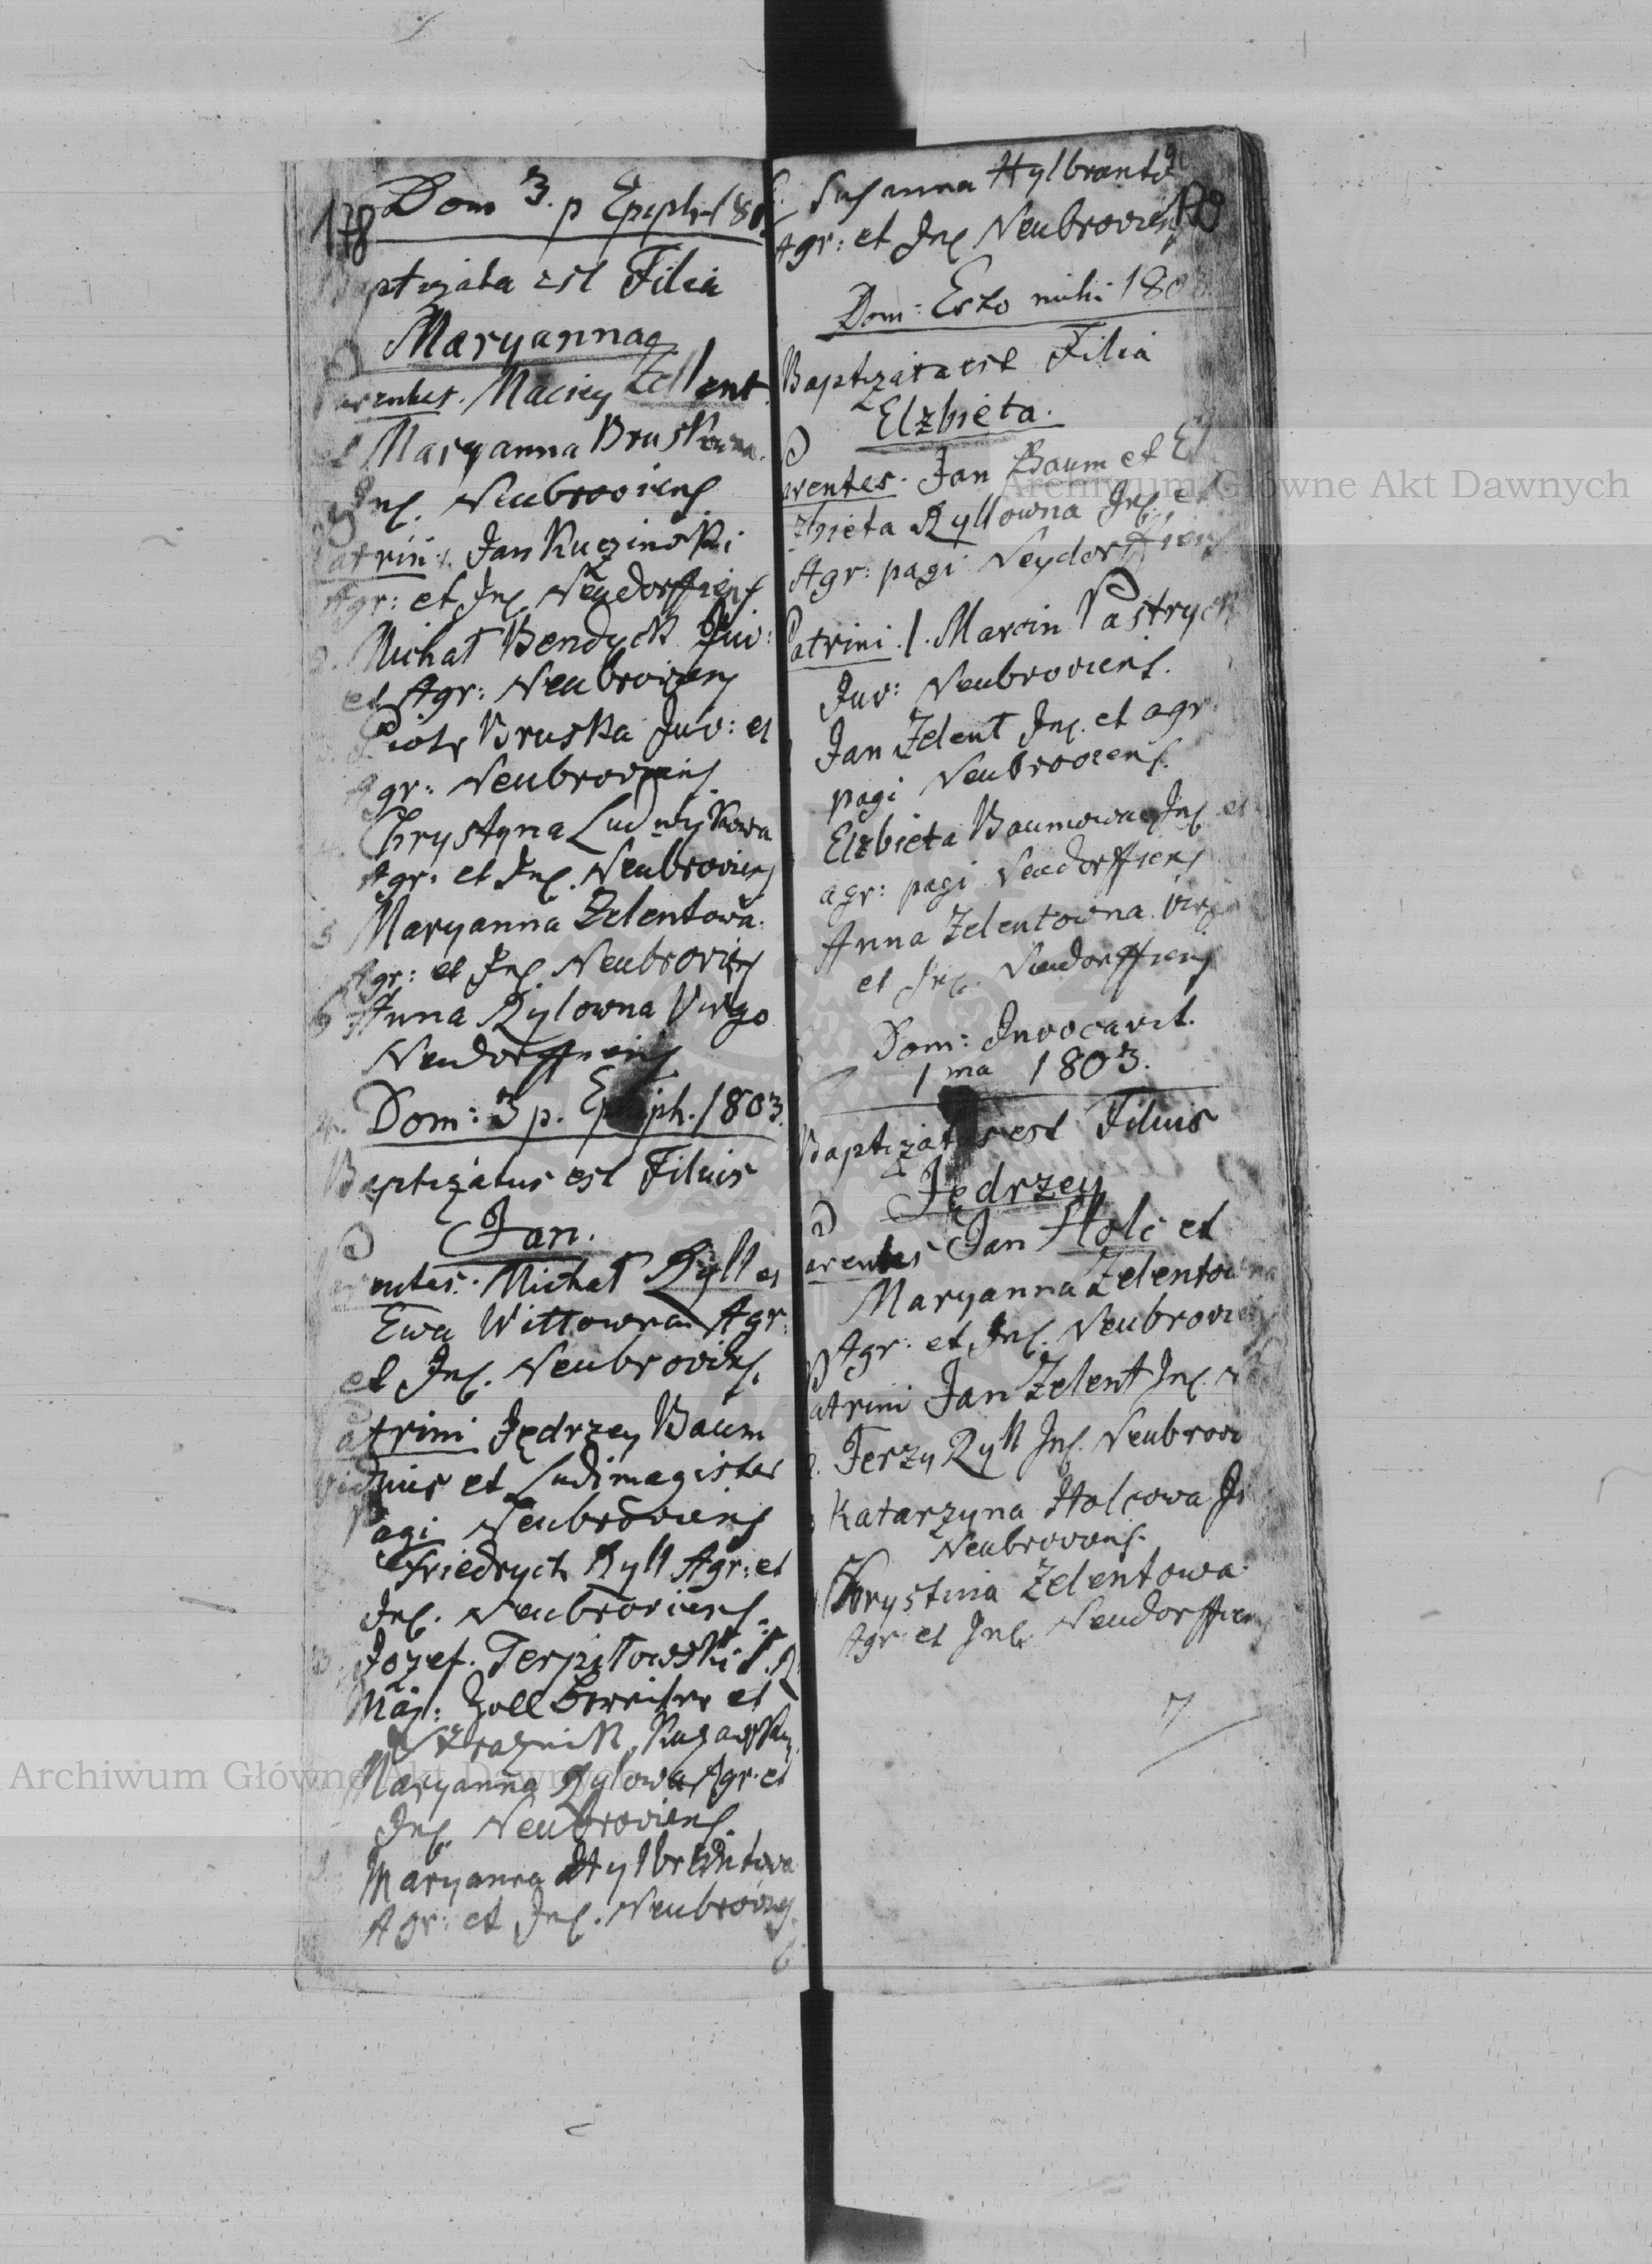 178 Dom 3. p Epiph. 180
Baptizata est Filia
Maryanna
Parentes. Maciey Zellent
et Maryanna Bruskowna
Inc. Neubroviens
Patrini 1. Jan Kuczinski
Agr: et Inc. Neudorffiens
2. Michał Bendyck Juv:
et Agr: Neubroviens
Piotr Bruska Juv: et
Agr: Neubroviens
Chrystyna Ludwykowa
Agr: et Inc. Neubroviens
5 Maryanna Zelentowa.
Agr: et Inc. Neubroviens
6 Anna Rylowna Virgo
Neudorffiens
Dom: 3 p. Epiph. 1803.
Baptizatus est Filius
Jan.
Parentes. Michał Ryll et
Ewa Wittowna Agr:
et Inc. Neubroviens.
Patrini Jędrzey Baum
Viduus et Ludimagister
Pagi Neubroviens
Friedrych Ryll Agr: et
Inc. Neubroviens.
3. Jozef. Terpiłowski
Maj: Zoll et
Strażnik
Maryanna Rylowa Agr. et
Inc. Neubroviens.
Maryanna Hylbrantowa
Agr: et Inc. Neubroviens
6.
6. Susanna Hylbrant
Agr: et Inc Neubroviens 179
Dom: Esto mihi 1803
Baptizata est Filia
Elzbieta.
Parentes. Jan Baum et El
zbieta Ryllowna Inc. et
Agr: pagi Neydorffiens
Patrini. 1. Marcin Pastryck
Juv: Neubroviens.
Jan Zelent Inc. et agr.
pagi Neubroviens.
Elzbieta Baumowa Inc et
agr: pagi Neudorffiens
Anna Zelentowna virg
et Inc. Neudorffiens
Dom: Invocavit.
1 ma 1803.
Baptizatus est Filius
Jędrzey
Parentes Jan Holc et
Maryanna Zelentowna
Agr: et Inc. Neubroviens
Patrini Jan Zelent Inc. N
2. Jerzy Ryll Inc. Neubrovi
Katarzyna Holcowa In
Neubroviens.
Chrystina Zelentowa
Agr: et Inc. Neudorffiens
7
Archiwum Główne Akt Dawnych
Archiwum Główne Akt Dawnych